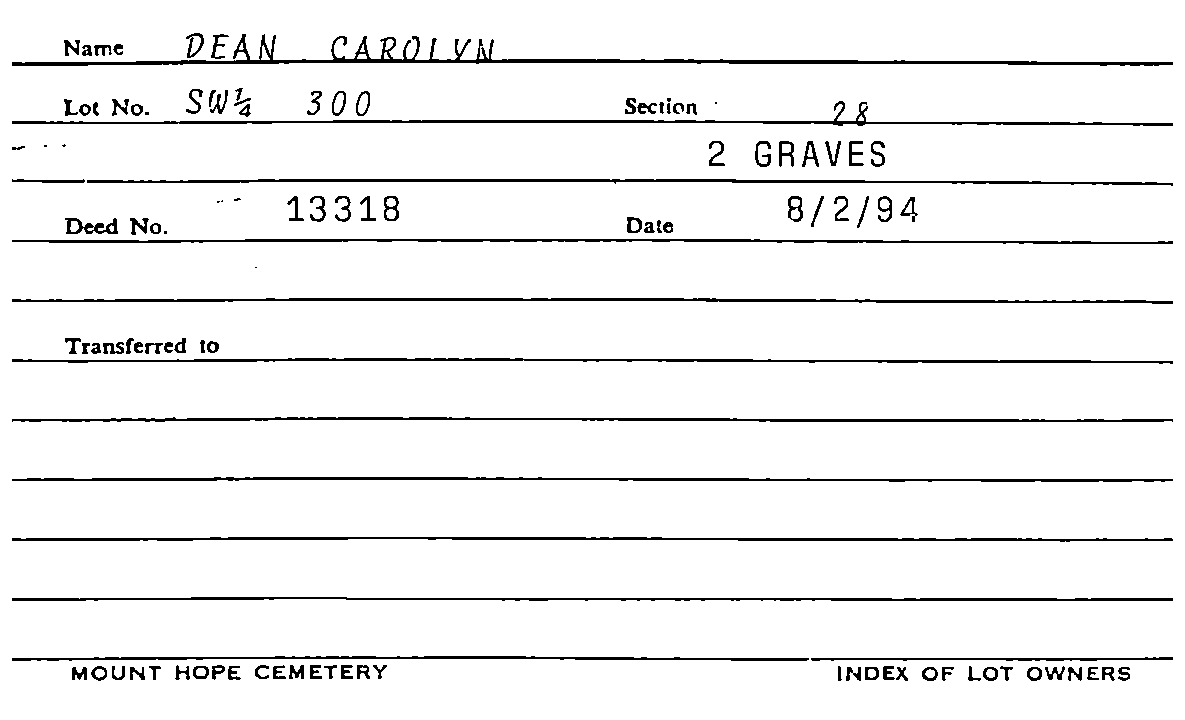 Name DEAN CAROLYN
Lot No. SW¼ 300 Section 28
2 GRAVES
Deed No. 13318 Date 8/2/94
Transferred to
MOUNT HOPE CEMETERY INDEX OF LOT OWNERS